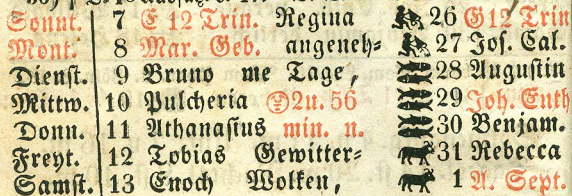 Sonnt. 7 E 12 Trin. Regina 26 G 12 Trin
Mont. 8 Mar. Geb. angeneh- 27 Jos. Cal.
Dienst. 9 Bruno me Tage, 28 Augustin
Mittw. 10 Pulcheria 2u. 56 29 Joh. Enth
Donn. 11 Athanasius min. n. 30 Benjam.
Freyt. 12 Tobias Gewitter- 31 Rebecca
Samst. 13 Enoch Wolken, 1 A. Sept.